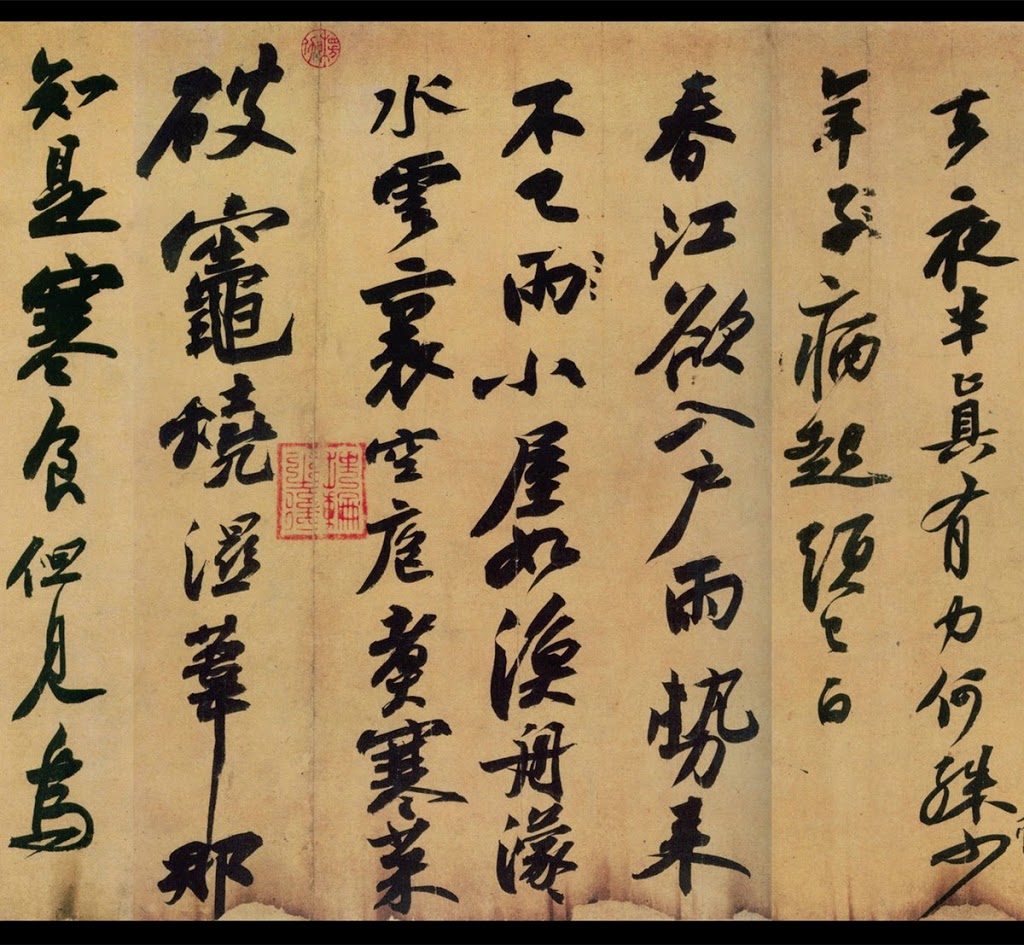 去夜半眞有力何殊少
年子病起須已白
春江欲入戶雨勢来
不已雨小屋如漁舟濛〻
水雲裏空庖煮寒菜
破竈燒濕葦那
知是寒食但見烏
埋輪之後